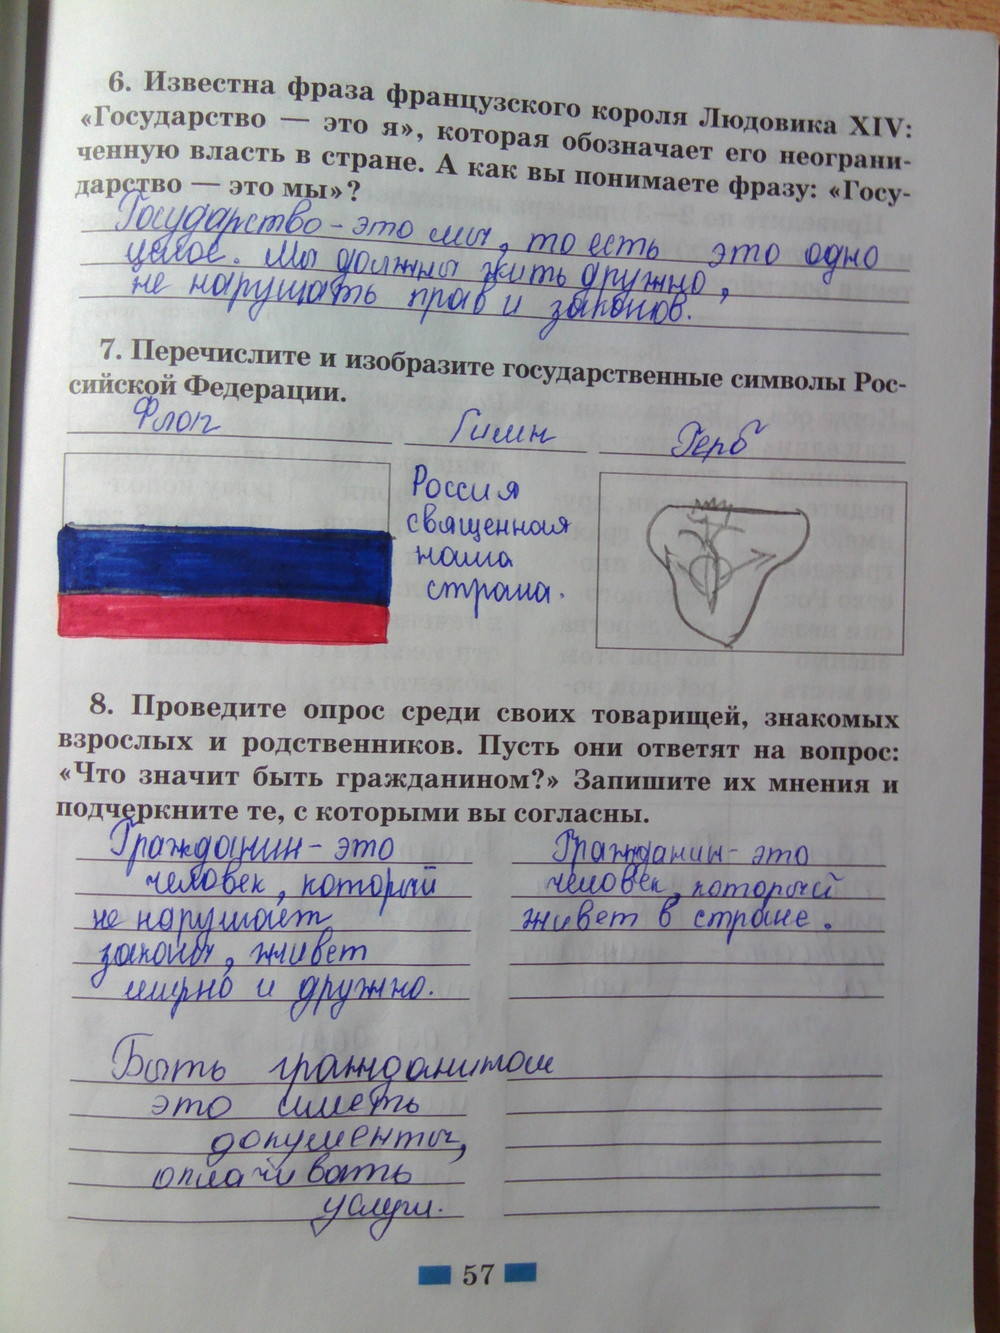 6. Известна фраза французского короля Людовика XIV:
«Государство — это я», которая обозначает его неограни-
ченную власть в стране. А как вы понимаете фразу: «Госу-
дарство — это мы»?
Государство - это мы, то есть это одно
целое. Мы должны жить дружно,
не нарушать прав и законов.
7. Перечислите и изобразите государственные символы Рос-
сийской Федерации.
Флаг Гимн Герб
Россия
священная
наша
страна.
8. Проведите опрос среди своих товарищей, знакомых
взрослых и родственников. Пусть они ответят на вопрос:
«Что значит быть гражданином?» Запишите их мнения и
подчеркните те, с которыми вы согласны.
Гражданин - это
человек, который
не нарушает
законы, живет
мирно и дружно.
Гражданин - это
человек, который
живет в стране.
Быть гражданином
это иметь
документы,
оплачивать
услуги.
57